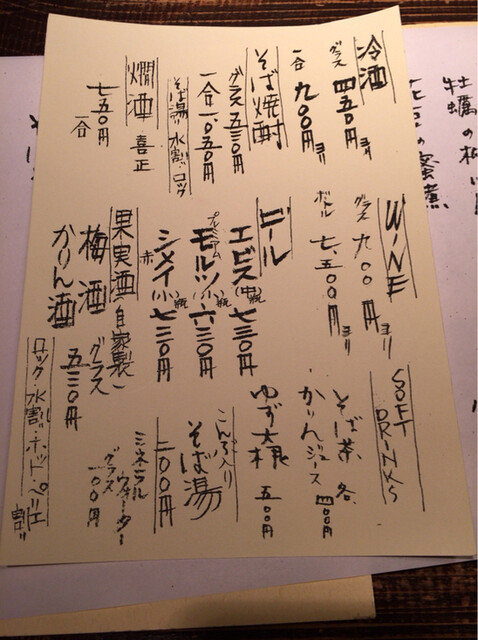 冷酒
グラス 四五〇円ヨリ
一合 九〇〇円ヨリ
そば焼酎
グラス 五三〇円
一合 一、〇五〇円
そば湯・水割・ロック
燗酒 喜正
七五〇円
一合
WINE
グラス 九〇〇円ヨリ
ボトル 七、五〇〇円ヨリ
ビール
エビス(中瓶) 七三〇円
プレミアム
モルツ(小瓶) 六三〇円
シメイ(小瓶) 七三〇円
赤
果実酒(自家製)
梅酒
かりん酒
グラス
五三〇円
ロック・水割・ホット・ペリエ割
SOFT
DRINKS
そば茶 各
かりんジュース 四〇〇円
ゆず大根 五〇〇
そば湯
二〇〇円
ミネラル
ウォーター
グラス 一〇〇円
牡蠣の
の蜜煮